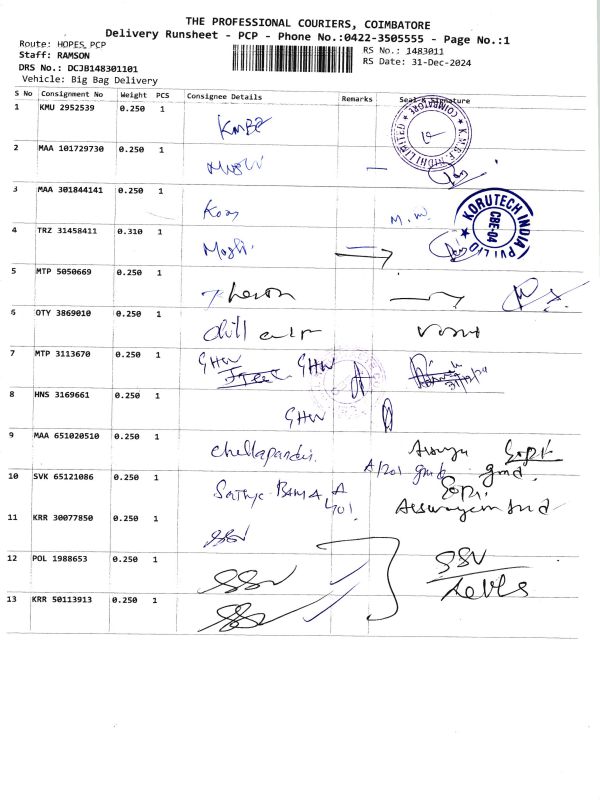 THE PROFESSIONAL COURIERS, COIMBATORE
Delivery Runsheet - PCP - Phone No.:0422-3505555 - Page No.:1
Route: HOPES_PCP
RS No.: 1483011
Staff: RAMSON
RS Date: 31-Dec-2024
DRS No.: DCJB148301101
Vehicle: Big Bag Delivery
S No Consignment No Weight PCS Consignee Details Remarks Seal & Signature
1 KMU 2952539 0.250 1
K.M.B.F. NIDHI LIMITED COIMBATORE
2 MAA 101729730 0.250 1
3 MAA 301844141 0.250 1 M.W.
KORUTECH INDIA PVT LTD
CBE-04
4 TRZ 31458411 0.310 1
5 MTP 5050669 0.250 1
6 OTY 3869010 0.250 1
7 MTP 3113670 0.250 1 GHW GHW
8 HNS 3169661 0.250 1 GHW
9 MAA 651020510 0.250 1 Chellapandi.
A1201
10 SVK 65121086 0.250 1 Sathya Bama A
401
11 KRR 30077850 0.250 1 SSV
12 POL 1988653 0.250 1 SSV SSV
13 KRR 50113913 0.250 1 SSV